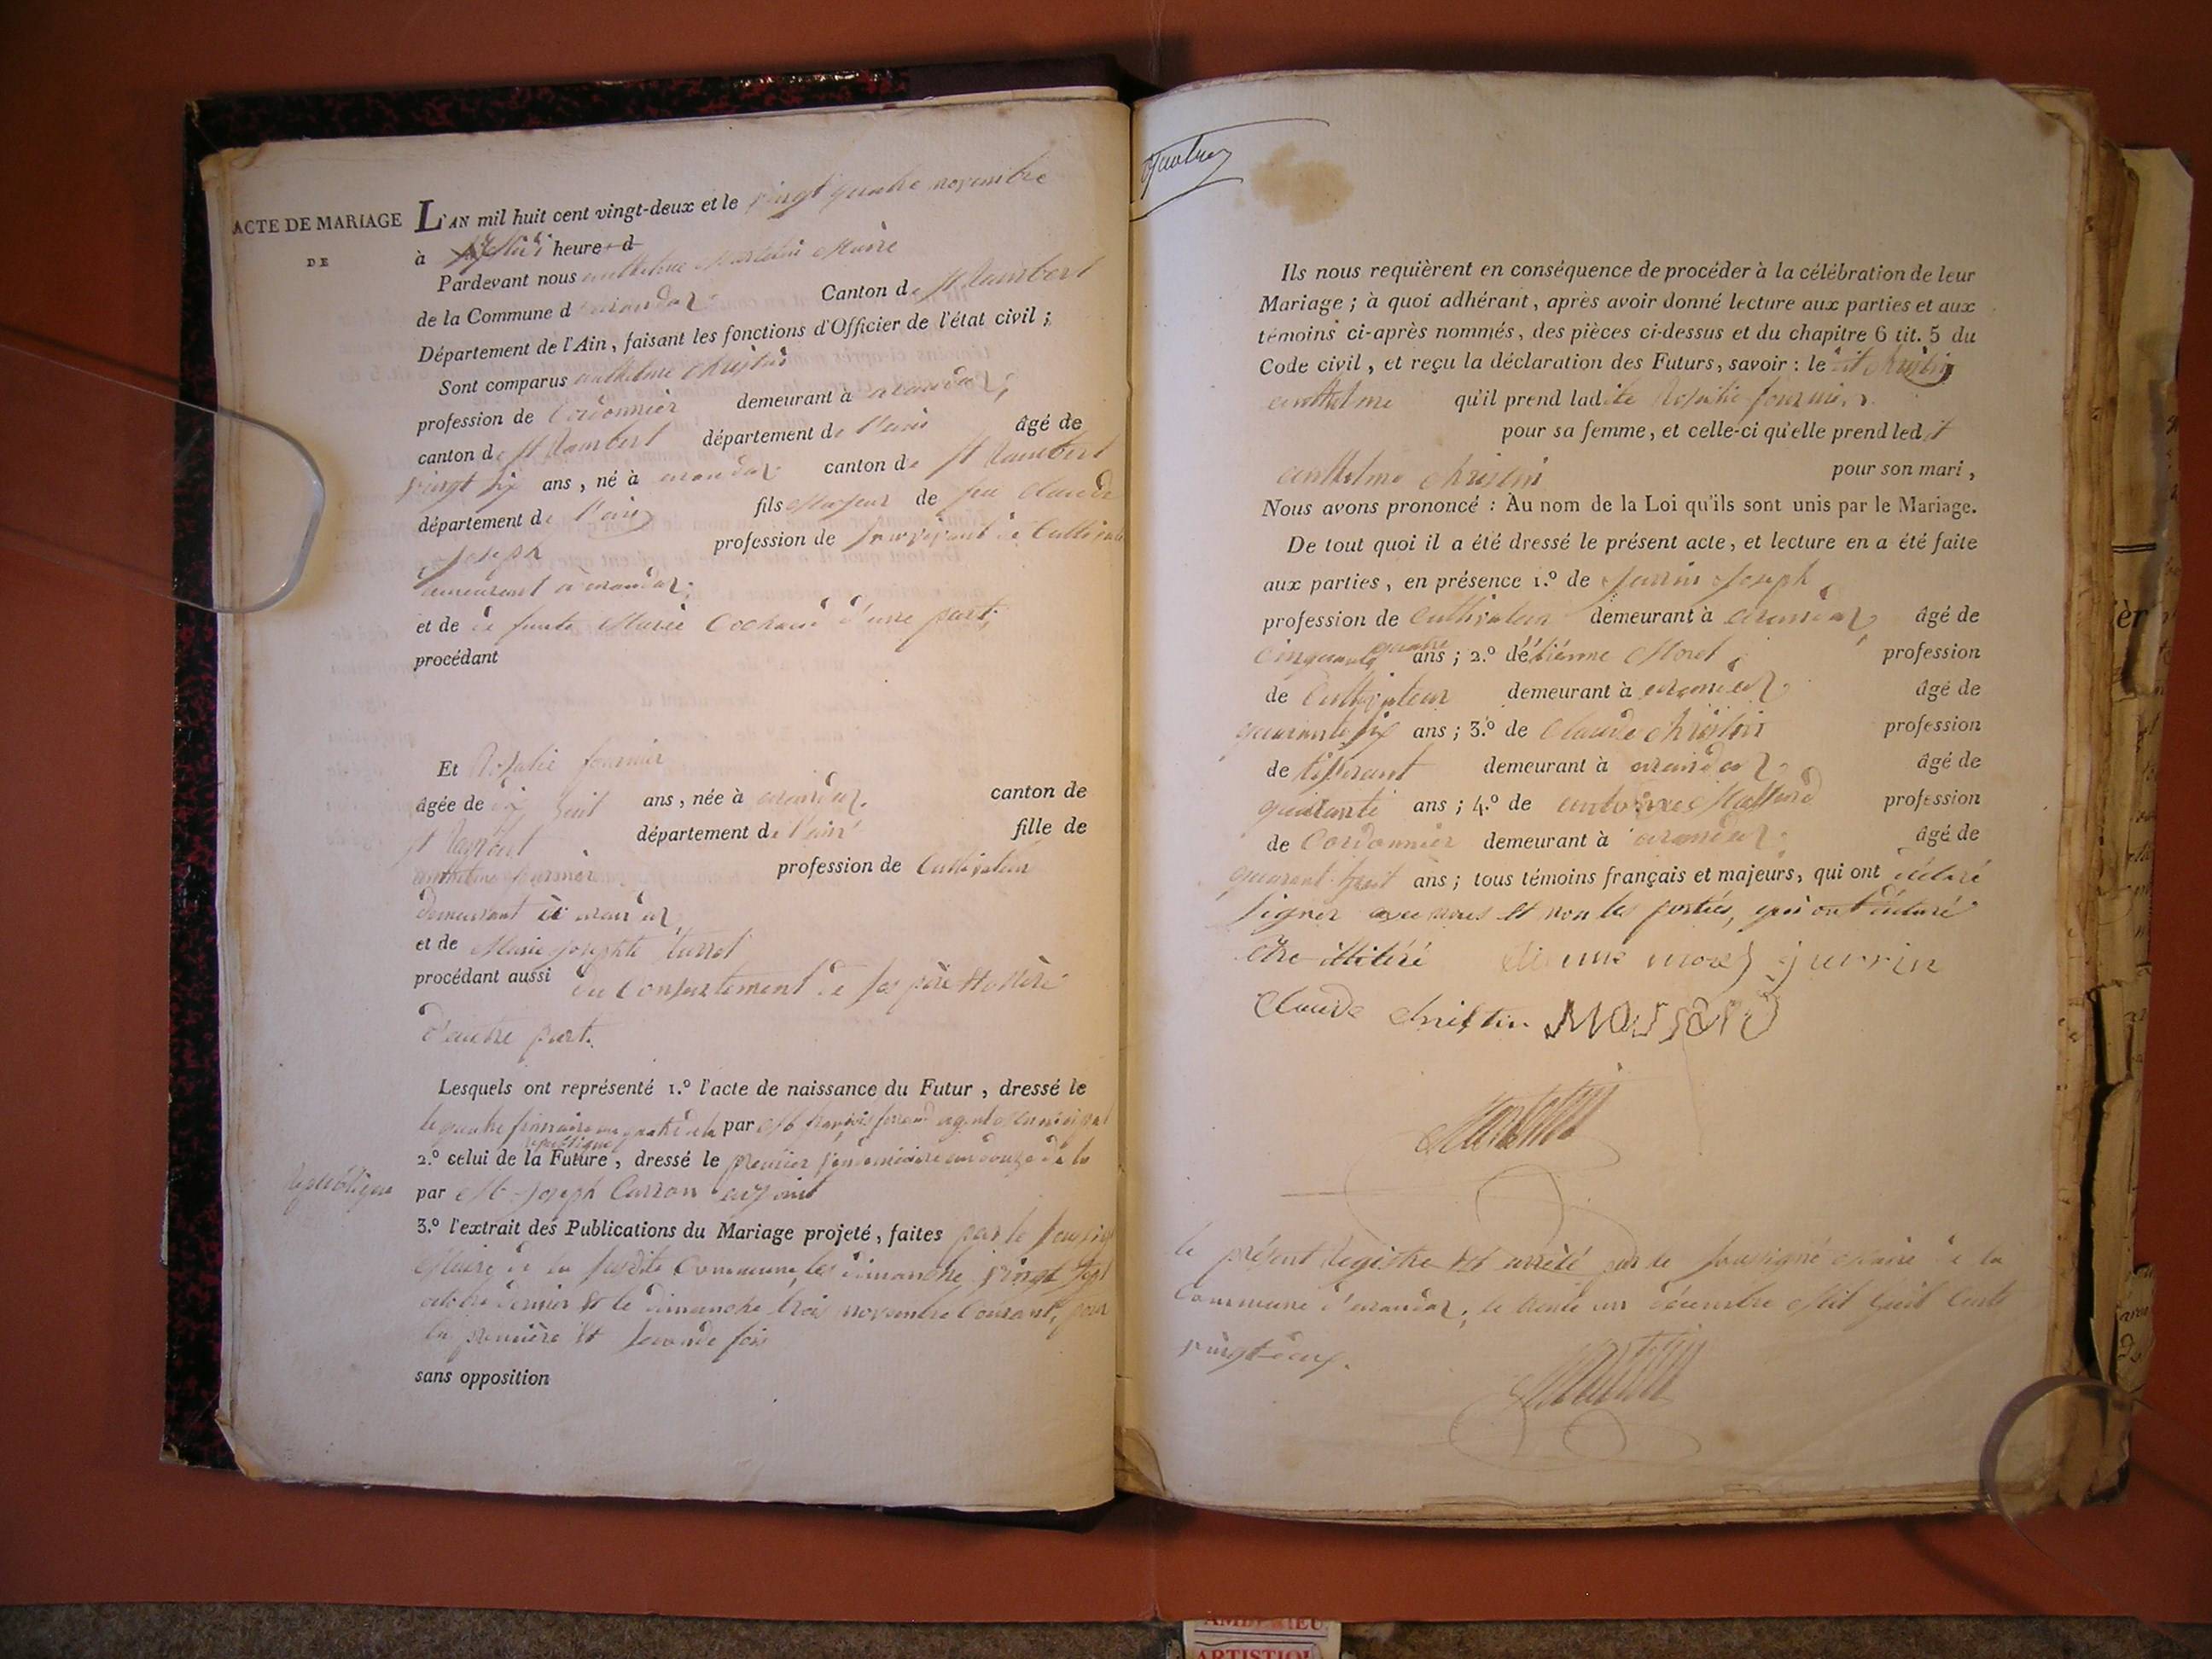 ACTE DE MARIAGE
DE
L'AN mil huit cent vingt-deux et le vingt quatre novembre
à heure d
Pardevant nous anthelme Martelin Maire
de la Commune d'arandaz Canton de St Rambert
Département de l'Ain, faisant les fonctions d'Officier de l'état civil ;
Sont comparus anthelme Christin
profession de Cordonnier demeurant à arandaz,
canton de St Rambert département de l'ain âgé de
vingt six ans, né à arandaz canton de St Rambert
département de l'ain fils Majeur de feu Claude
Joseph profession de
demeurant à arandaz
et de de feute Marie Cochard d'une part,
procédant
Et Rosalie fournier
âgée de dix huit ans, née à arandaz canton de
St Rambert département de l'ain fille de
anthelme fournier profession de Cultivateur
demeurant à arandaz
et de Marie Josephte
procédant aussi du Consentement de ses père et Mère
d'autre part.
Lesquels ont représenté 1.º l'acte de naissance du Futur, dressé le
le quatre an quatre de la par françois agent Municipal
république
2.º celui de la Future, dressé le premier vendemiaire an douze de la
république par Joseph Carron adjoint
3.º l'extrait des Publications du Mariage projeté, faites par le
Maire de la susdite Commune, les dimanche vingt sept
octobre dernier et le dimanche trois novembre Courant, pour
la première et seconde fois
sans opposition
Ils nous requièrent en conséquence de procéder à la célébration de leur
Mariage ; à quoi adhérant, après avoir donné lecture aux parties et aux
témoins ci-après nommés, des pièces ci-dessus et du chapitre 6 tit. 5 du
Code civil, et reçu la déclaration des Futurs, savoir : le dit Christin
anthelme qu'il prend ladite Rosalie fournier
pour sa femme, et celle-ci qu'elle prend ledit
anthelme Christin pour son mari,
Nous avons prononcé : Au nom de la Loi qu'ils sont unis par le Mariage.
De tout quoi il a été dressé le présent acte, et lecture en a été faite
aux parties, en présence 1.º de Joseph
profession de Cultivateur demeurant à arandaz âgé de
cinquante quatre ans ; 2.º d'étiénne Morel profession
de Cultivateur demeurant à arandaz âgé de
quarante six ans ; 3.º de Claude Christin profession
de tisserant demeurant à arandaz âgé de
quarante ans ; 4.º de antoine Massard profession
de Cordonnier demeurant à arandaz âgé de
quarant huit ans ; tous témoins français et majeurs, qui ont déclaré
signer avec nous et non les parties, qui ont déclaré
être illitéré etienne morel
Claude christin MASSARD
Martelin
le présent Registre est arrêté par le soussigné Maire de la
Commune d'arandaz, le trente un décembre Mil huit Cent
vingt deux.
Martelin
AMBERIEU